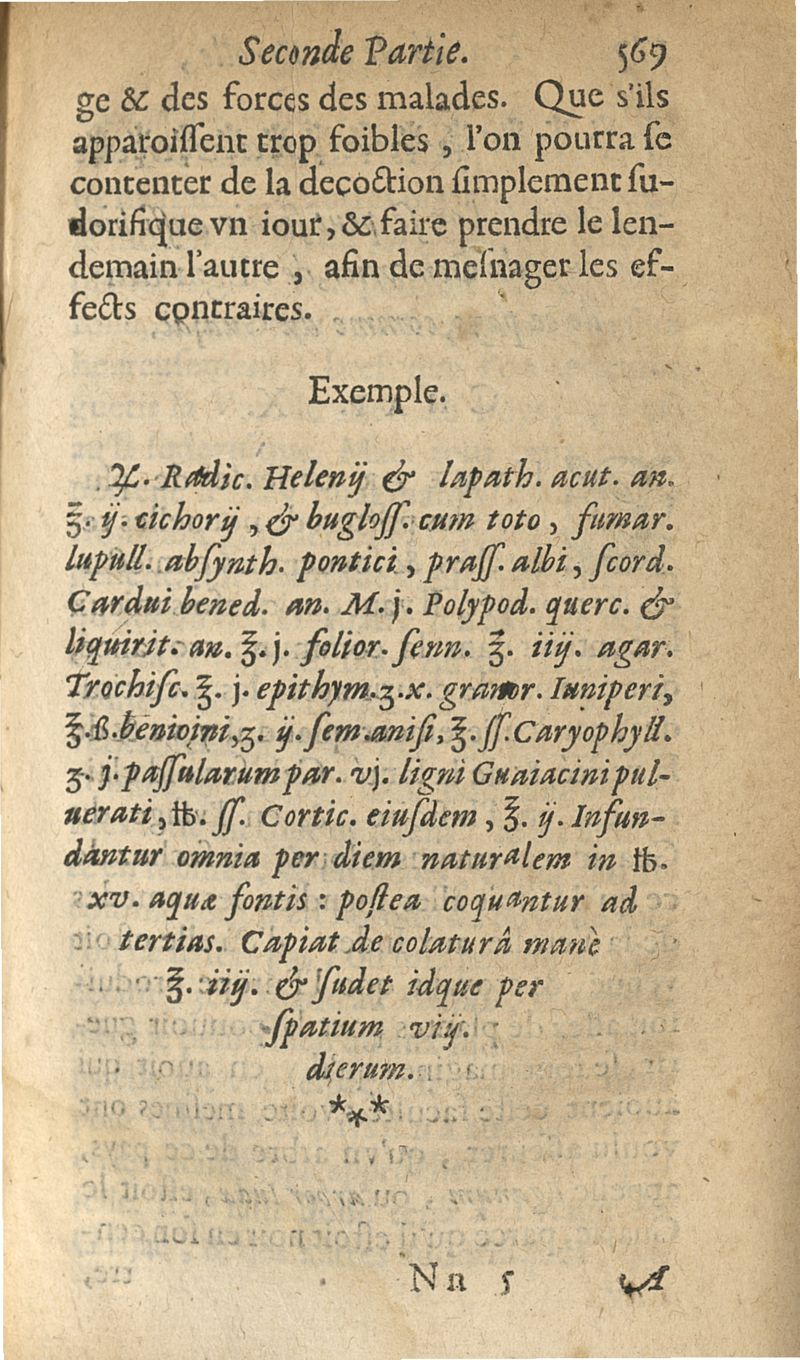 Seconde Partie. 569
ge & des forces des malades. Que s'ils
apparoiſſent trop foibles , l'on pourra ſe
contenter de la decoction ſimplement ſu-
dorifique vn iour, & faire prendre le len-
demain l'autre , afin de meſnager les ef-
fects contraires.
Exemple.
♃. Radic. Helenij & lapath. acut. an.
℥. ij. cichorij , & bugloſſ. cum toto , fumar.
lupull. abſynth. pontici , praſſ. albi , ſcord.
Cardui bened. an. M. j. Polypod. querc. &
liquirit. an. ℥. j. folior. ſenn. ℥. iiij. agar.
Trochiſc. ℥. j. epithym. ʒ. x. granor. Iuniperi,
℥. ß. benioini, ʒ. ij. ſem. aniſi, ℥. ſſ. Caryophyll.
ʒ. j. paſſularum par. vj. ligni Guaiacini pul-
uerati, ℔. ſſ. Cortic. eiuſdem , ℥. ij. Infun-
dantur omnia per diem naturalem in ℔.
xv. aquæ fontis : poſtea coquantur ad
tertias. Capiat de colaturâ manè
℥. iiij. & ſudet idque per
ſpatium viij.
dierum.
***
Nn 5 A